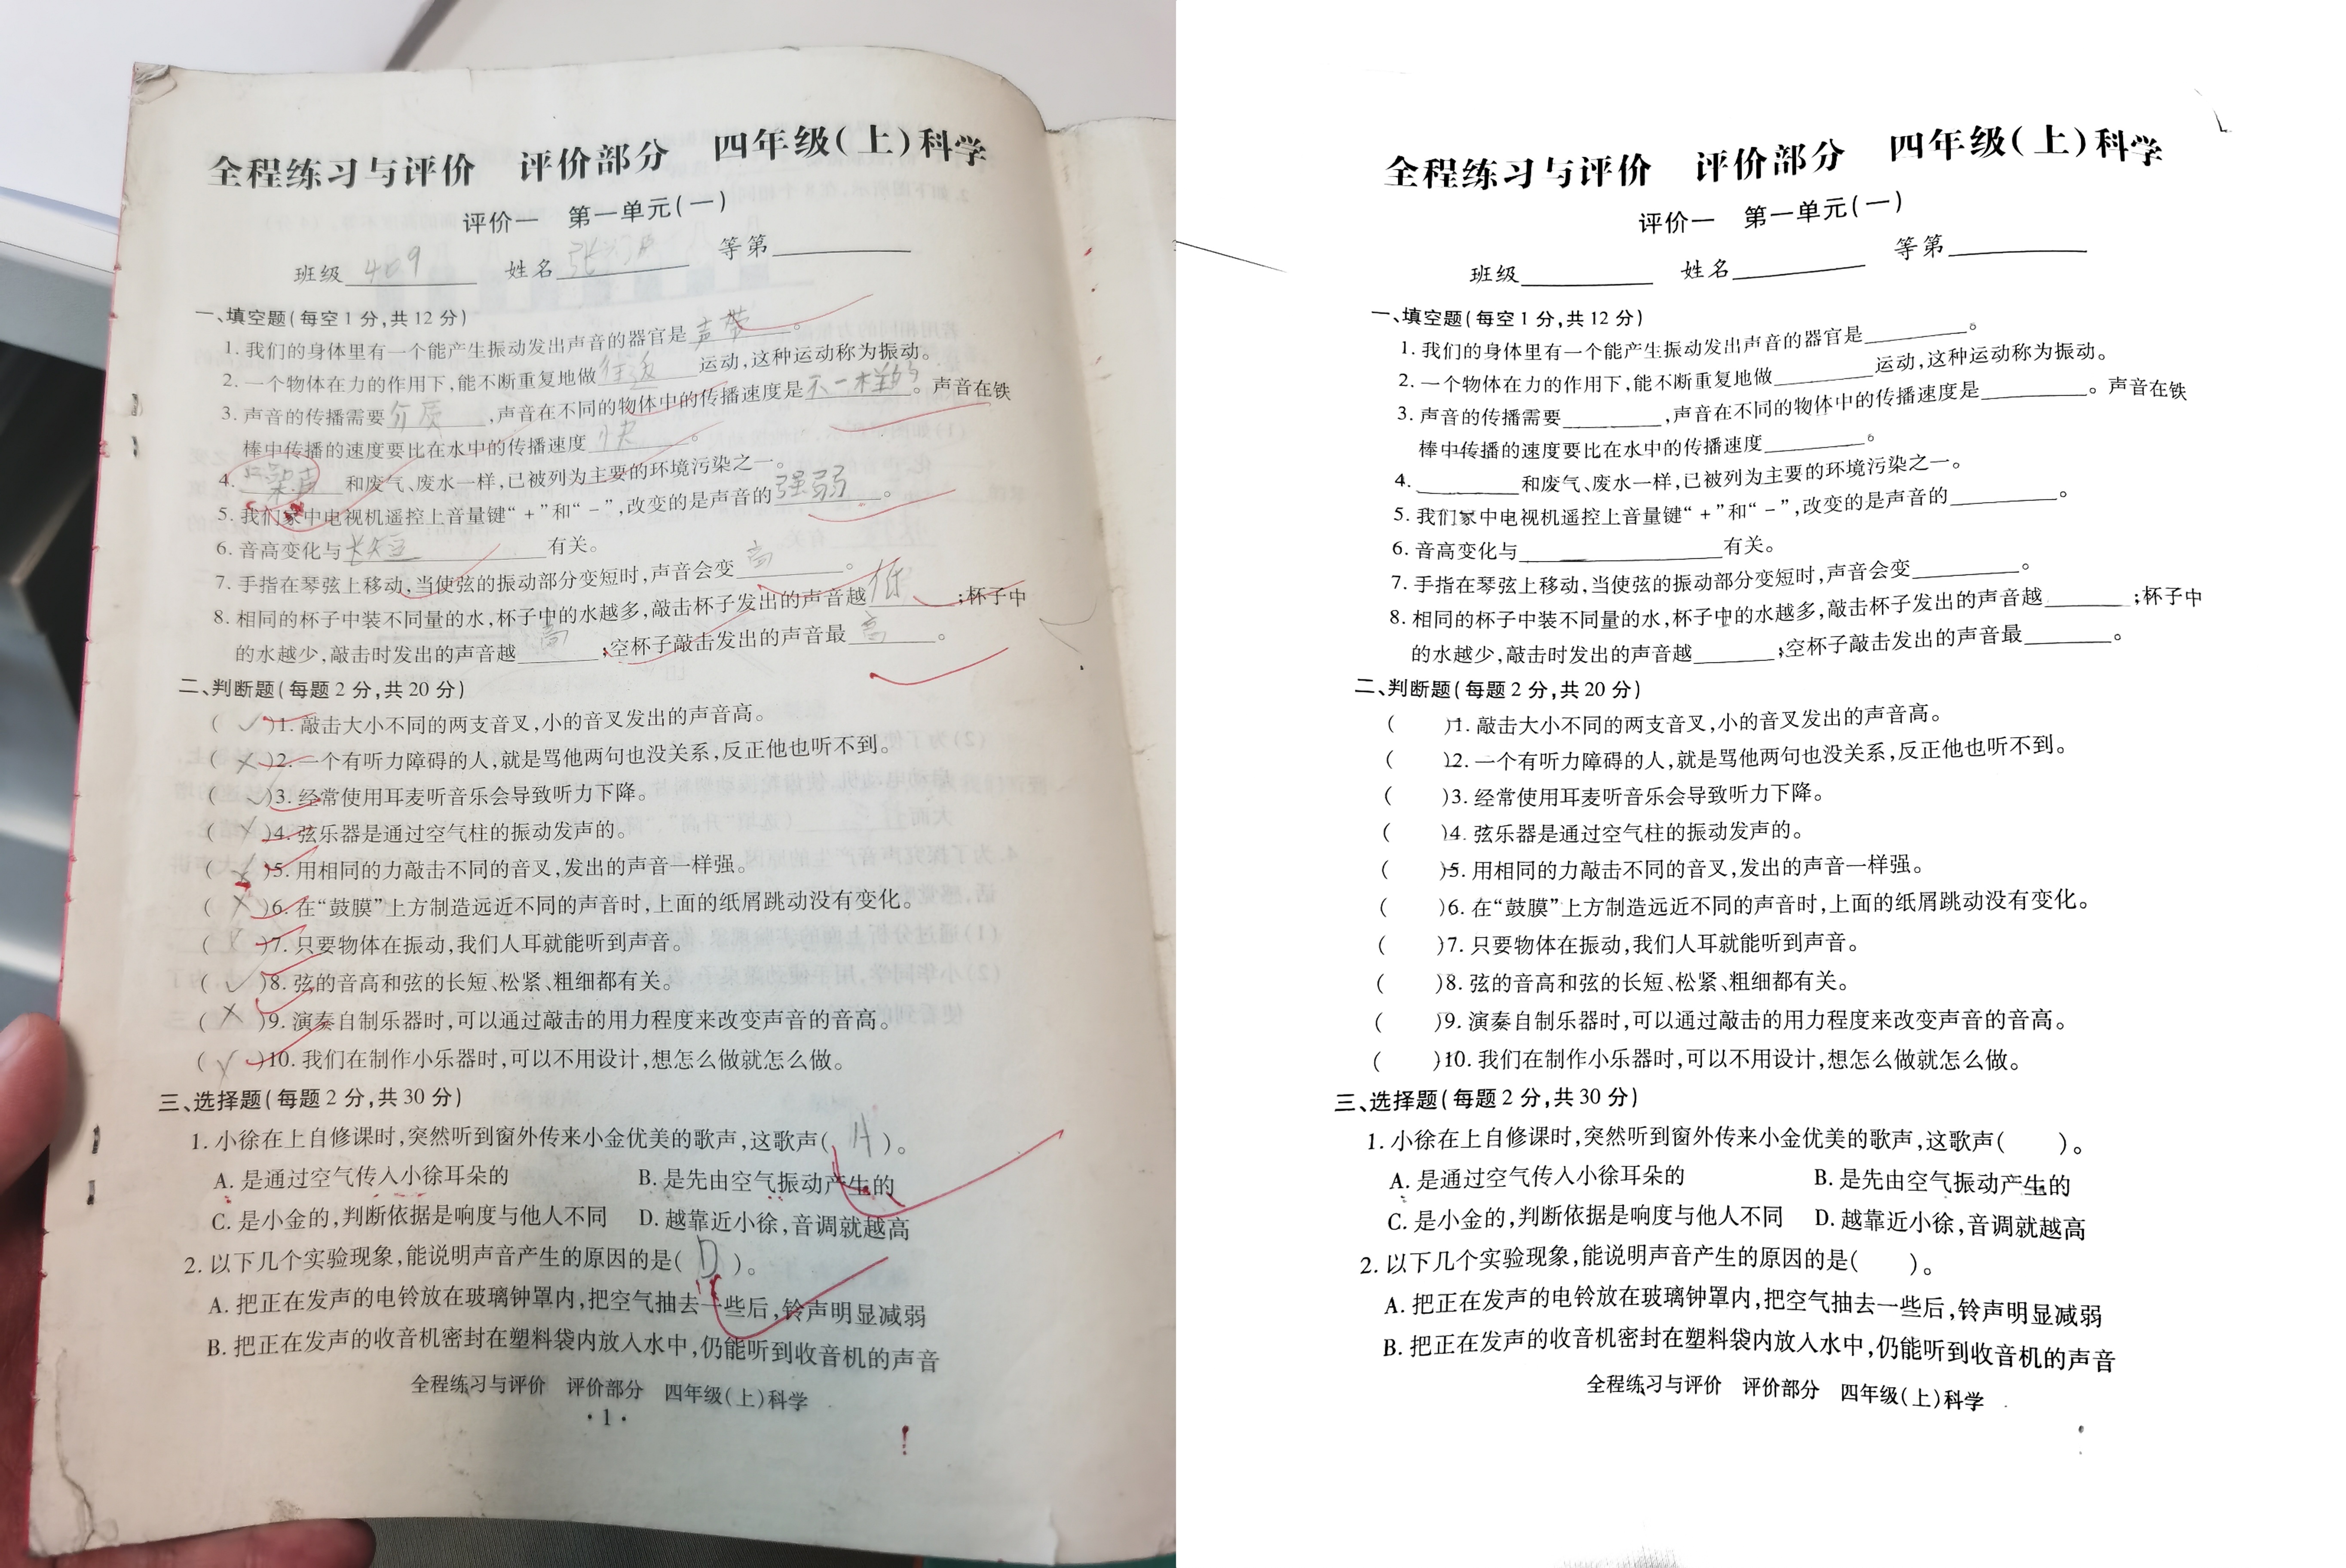 全程练习与评价 评价部分 四年级(上)科学
评价一 第一单元(一)
班级 409 姓名 等第
一、填空题(每空1分,共12分)
1. 我们的身体里有一个能产生振动发出声音的器官是声带。
2. 一个物体在力的作用下,能不断重复地做往返运动,这种运动称为振动。
3. 声音的传播需要介质,声音在不同的物体中的传播速度是不一样的。声音在铁
棒中传播的速度要比在水中的传播速度快。
4. 噪声和废气、废水一样,已被列为主要的环境污染之一。
5. 我们家中电视机遥控上音量键“+”和“-”,改变的是声音的强弱。
6. 音高变化与长短有关。
7. 手指在琴弦上移动,当使弦的振动部分变短时,声音会变高。
8. 相同的杯子中装不同量的水,杯子中的水越多,敲击杯子发出的声音越低;杯子中
的水越少,敲击时发出的声音越高;空杯子敲击发出的声音最高。
二、判断题(每题2分,共20分)
(✓)1. 敲击大小不同的两支音叉,小的音叉发出的声音高。
(×)2. 一个有听力障碍的人,就是骂他两句也没关系,反正他也听不到。
(✓)3. 经常使用耳麦听音乐会导致听力下降。
(×)4. 弦乐器是通过空气柱的振动发声的。
(×)5. 用相同的力敲击不同的音叉,发出的声音一样强。
(×)6. 在“鼓膜”上方制造远近不同的声音时,上面的纸屑跳动没有变化。
(×)7. 只要物体在振动,我们人耳就能听到声音。
(✓)8. 弦的音高和弦的长短、松紧、粗细都有关。
(×)9. 演奏自制乐器时,可以通过敲击的用力程度来改变声音的音高。
(×)10. 我们在制作小乐器时,可以不用设计,想怎么做就怎么做。
三、选择题(每题2分,共30分)
1. 小徐在上自修课时,突然听到窗外传来小金优美的歌声,这歌声(A)。
A. 是通过空气传入小徐耳朵的 B. 是先由空气振动产生的
C. 是小金的,判断依据是响度与他人不同 D. 越靠近小徐,音调就越高
2. 以下几个实验现象,能说明声音产生的原因的是(D)。
A. 把正在发声的电铃放在玻璃钟罩内,把空气抽去一些后,铃声明显减弱
B. 把正在发声的收音机密封在塑料袋内放入水中,仍能听到收音机的声音
全程练习与评价 评价部分 四年级(上)科学
·1·
全程练习与评价 评价部分 四年级(上)科学
评价一 第一单元(一)
班级 姓名 等第
一、填空题(每空1分,共12分)
1. 我们的身体里有一个能产生振动发出声音的器官是______。
2. 一个物体在力的作用下,能不断重复地做______运动,这种运动称为振动。
3. 声音的传播需要______,声音在不同的物体中的传播速度是______。声音在铁
棒中传播的速度要比在水中的传播速度______。
4. ______和废气、废水一样,已被列为主要的环境污染之一。
5. 我们家中电视机遥控上音量键“+”和“-”,改变的是声音的______。
6. 音高变化与______有关。
7. 手指在琴弦上移动,当使弦的振动部分变短时,声音会变______。
8. 相同的杯子中装不同量的水,杯子中的水越多,敲击杯子发出的声音越______;杯子中
的水越少,敲击时发出的声音越______;空杯子敲击发出的声音最______。
二、判断题(每题2分,共20分)
( )1. 敲击大小不同的两支音叉,小的音叉发出的声音高。
( )2. 一个有听力障碍的人,就是骂他两句也没关系,反正他也听不到。
( )3. 经常使用耳麦听音乐会导致听力下降。
( )4. 弦乐器是通过空气柱的振动发声的。
( )5. 用相同的力敲击不同的音叉,发出的声音一样强。
( )6. 在“鼓膜”上方制造远近不同的声音时,上面的纸屑跳动没有变化。
( )7. 只要物体在振动,我们人耳就能听到声音。
( )8. 弦的音高和弦的长短、松紧、粗细都有关。
( )9. 演奏自制乐器时,可以通过敲击的用力程度来改变声音的音高。
( )10. 我们在制作小乐器时,可以不用设计,想怎么做就怎么做。
三、选择题(每题2分,共30分)
1. 小徐在上自修课时,突然听到窗外传来小金优美的歌声,这歌声( )。
A. 是通过空气传入小徐耳朵的 B. 是先由空气振动产生的
C. 是小金的,判断依据是响度与他人不同 D. 越靠近小徐,音调就越高
2. 以下几个实验现象,能说明声音产生的原因的是( )。
A. 把正在发声的电铃放在玻璃钟罩内,把空气抽去一些后,铃声明显减弱
B. 把正在发声的收音机密封在塑料袋内放入水中,仍能听到收音机的声音
全程练习与评价 评价部分 四年级(上)科学